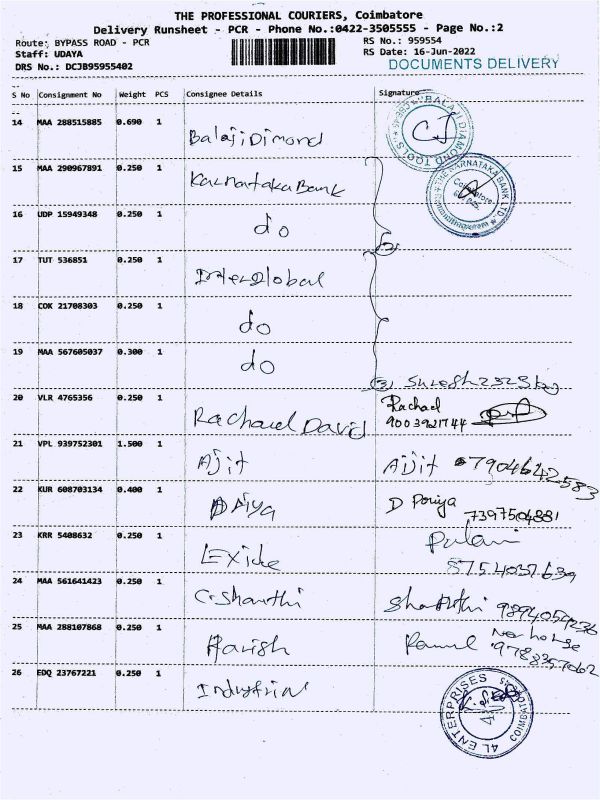 THE PROFESSIONAL COURIERS, Coimbatore
Delivery Runsheet - PCR - Phone No.:0422-3505555 - Page No.:2
Route: BYPASS ROAD - PCR
RS No.: 959554
Staff: UDAYA
RS Date: 16-Jun-2022
DRS No.: DCJB95955402
DOCUMENTS DELIVERY
S No Consignment No Weight PCS Consignee Details Signature
14 MAA 288515885 0.690 1 Balaji Dimond CJ
BALAJI DIAMOND TOOLS
15 MAA 290967891 0.250 1 Karnataka Bank
THE KARNATAKA BANK LTD.
Coimbatore
16 UDP 15949348 0.250 1 do
17 TUT 536851 0.250 1 InterGlobal
18 COK 21708303 0.250 1 do
19 MAA 567605037 0.300 1 do
③ Suresh
20 VLR 4765356 0.250 1 Rachael David Rachael
9003921744
21 VPL 939752301 1.500 1 Ajit Ajit 7904642583
22 KUR 608703134 0.400 1 D Poriya
7397504881
23 KRR 5408632 0.250 1 Lexide Palani
8754037639
24 MAA 561641423 0.250 1 C. Shanthi Shanthi 9894059236
25 MAA 288107868 0.250 1 Harish
9788357062
26 EDQ 23767221 0.250 1 Industrial
4L ENTERPRISES
COIMBATORE